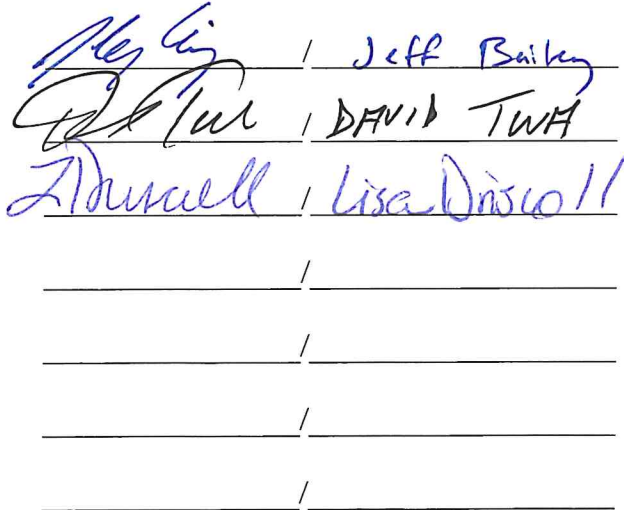 / Jeff Bailey
/ DAVID TWA
L Driscoll / Lisa Driscoll
/
/
/
/